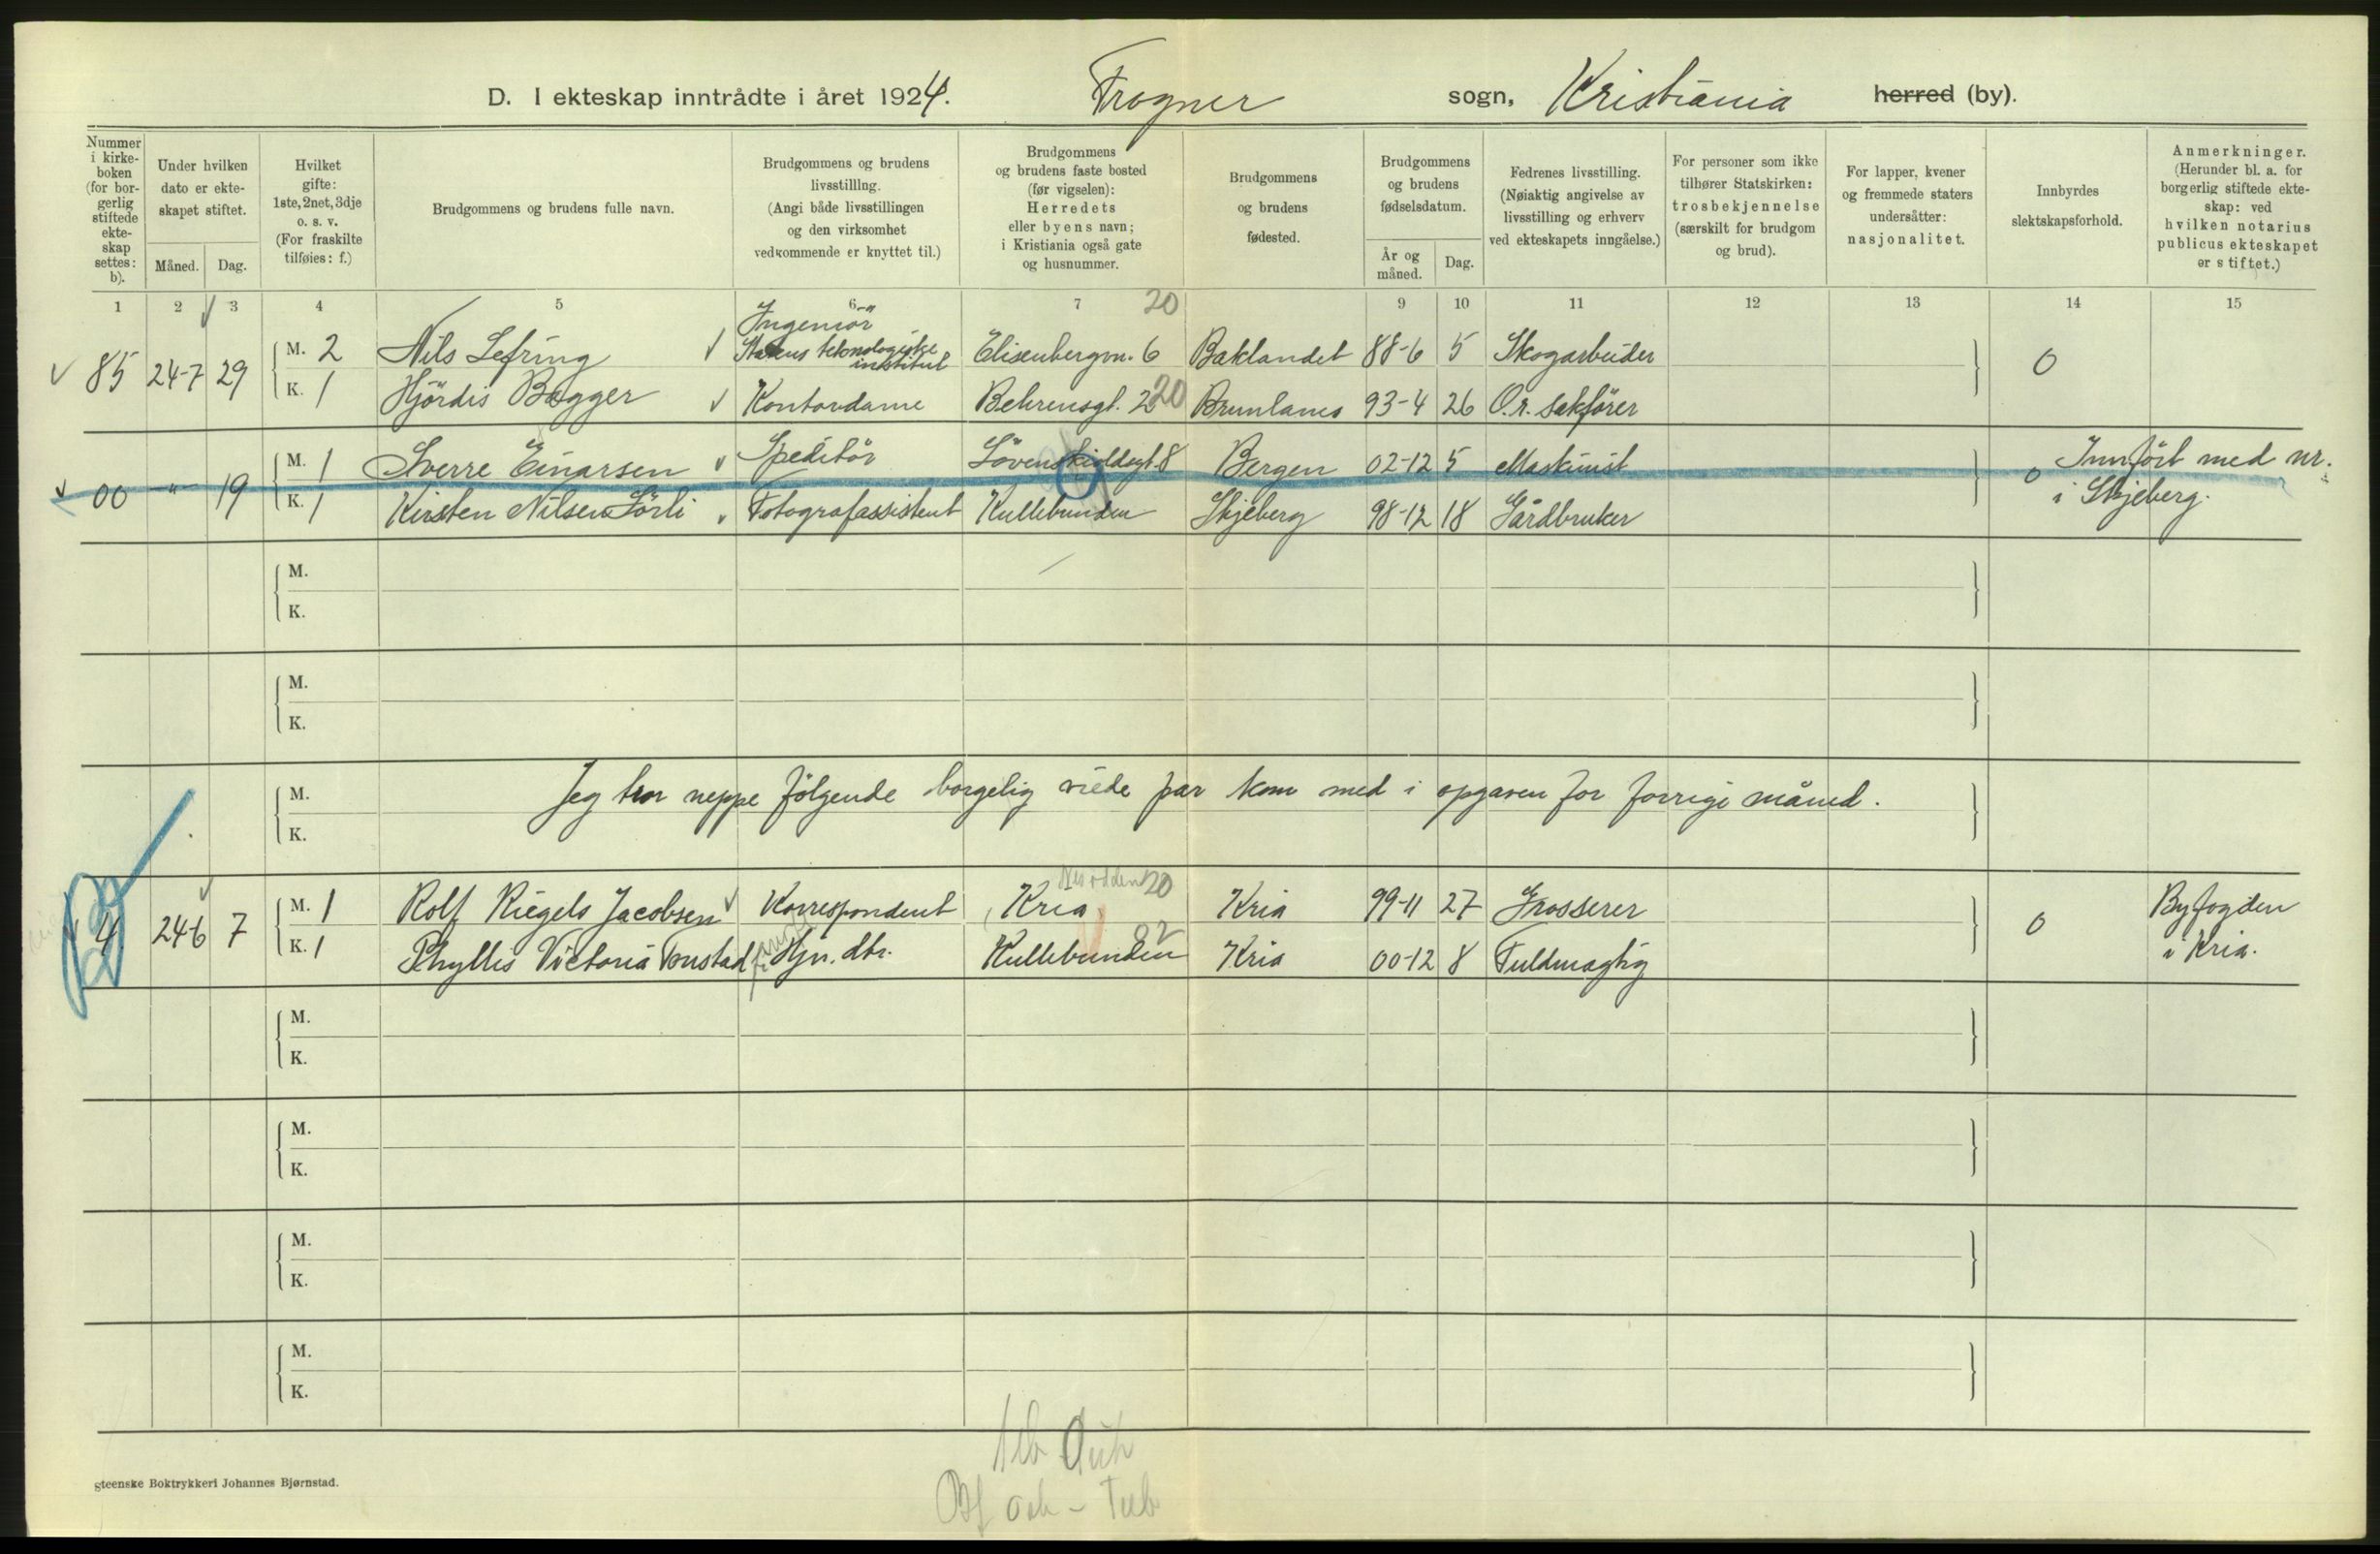 D. I ekteskap inntrådte i året 1924. Frogner sogn, Kristiania herred (by).
Nummer i kirke- boken (for bor- gerlig stiftede ekte- skap settes: b).
Under hvilken dato er ekte- skapet stiftet.
Måned. Dag.
Hvilket gifte: 1ste, 2net, 3dje o. s. v. (For fraskilte tilføies: f.)
Brudgommens og brudens fulle navn.
Brudgommens og brudens livsstilling. (Angi både livsstillingen og den virksomhet vedkommende er knyttet til.)
Brudgommens og brudens faste bosted (før vigselen): Herredets eller byens navn; i Kristiania også gate og husnummer.
Brudgommens og brudens fødested.
Brudgommens og brudens fødselsdatum.
År og måned. Dag.
Fedrenes livsstilling. (Nøiaktig angivelse av livsstilling og erhverv ved ekteskapets inngåelse.)
For personer som ikke tilhører Statskirken: trosbekjennelse (særskilt for brudgom og brud).
For lapper, kvener og fremmede staters undersåtter: nasjonalitet.
Innbyrdes slektskapsforhold.
Anmerkninger. (Herunder bl. a. for borgerlig stiftede ekte- skap: ved hvilken notarius publicus ekteskapet er stiftet.)
1 2 3 4 5 6 7 20 9 10 11 12 13 14 15
85 24-7 29 M. 2 Nils Lefring Ingeniör Statens teknologiske institut Elisenbergvn. 6 Baklandet 88-6 5 Skogarbeider 0
K. 1 Hjördis Bagger Kontordame Behrensgt. 2 20 Brunlanes 93-4 26 O.r. sakförer
00 -"- 19 M. 1 Sverre Einarsen Speditör Lövenskioldsgt. 8 Bergen 02-12 5 Maskinist 0 Innfört med nr.
K. 1 Kirsten Nilsen Lörli Fotografassistent Kullebunden Skjeberg 98-12 18 Gårdbruker i Skjeberg.
M.
K.
M.
K.
M. Jeg tror neppe følgende borgelig viede par kom med i opgaven for forrige måned.
K.
4 24-6 7 M. 1 Rolf Riegels Jacobsen Korrespondent Kria 20 Kria 99-11 27 Grosserer 0 Byfogden
K. 1 Phyllis Victoria Tonstad Hjv. dtr. Kullebunden Kria 00-12 8 Fuldmægtig i Kria.
M.
K.
M.
K.
M.
K.
M.
K.
steenske Boktrykkeri Johannes Bjørnstad.